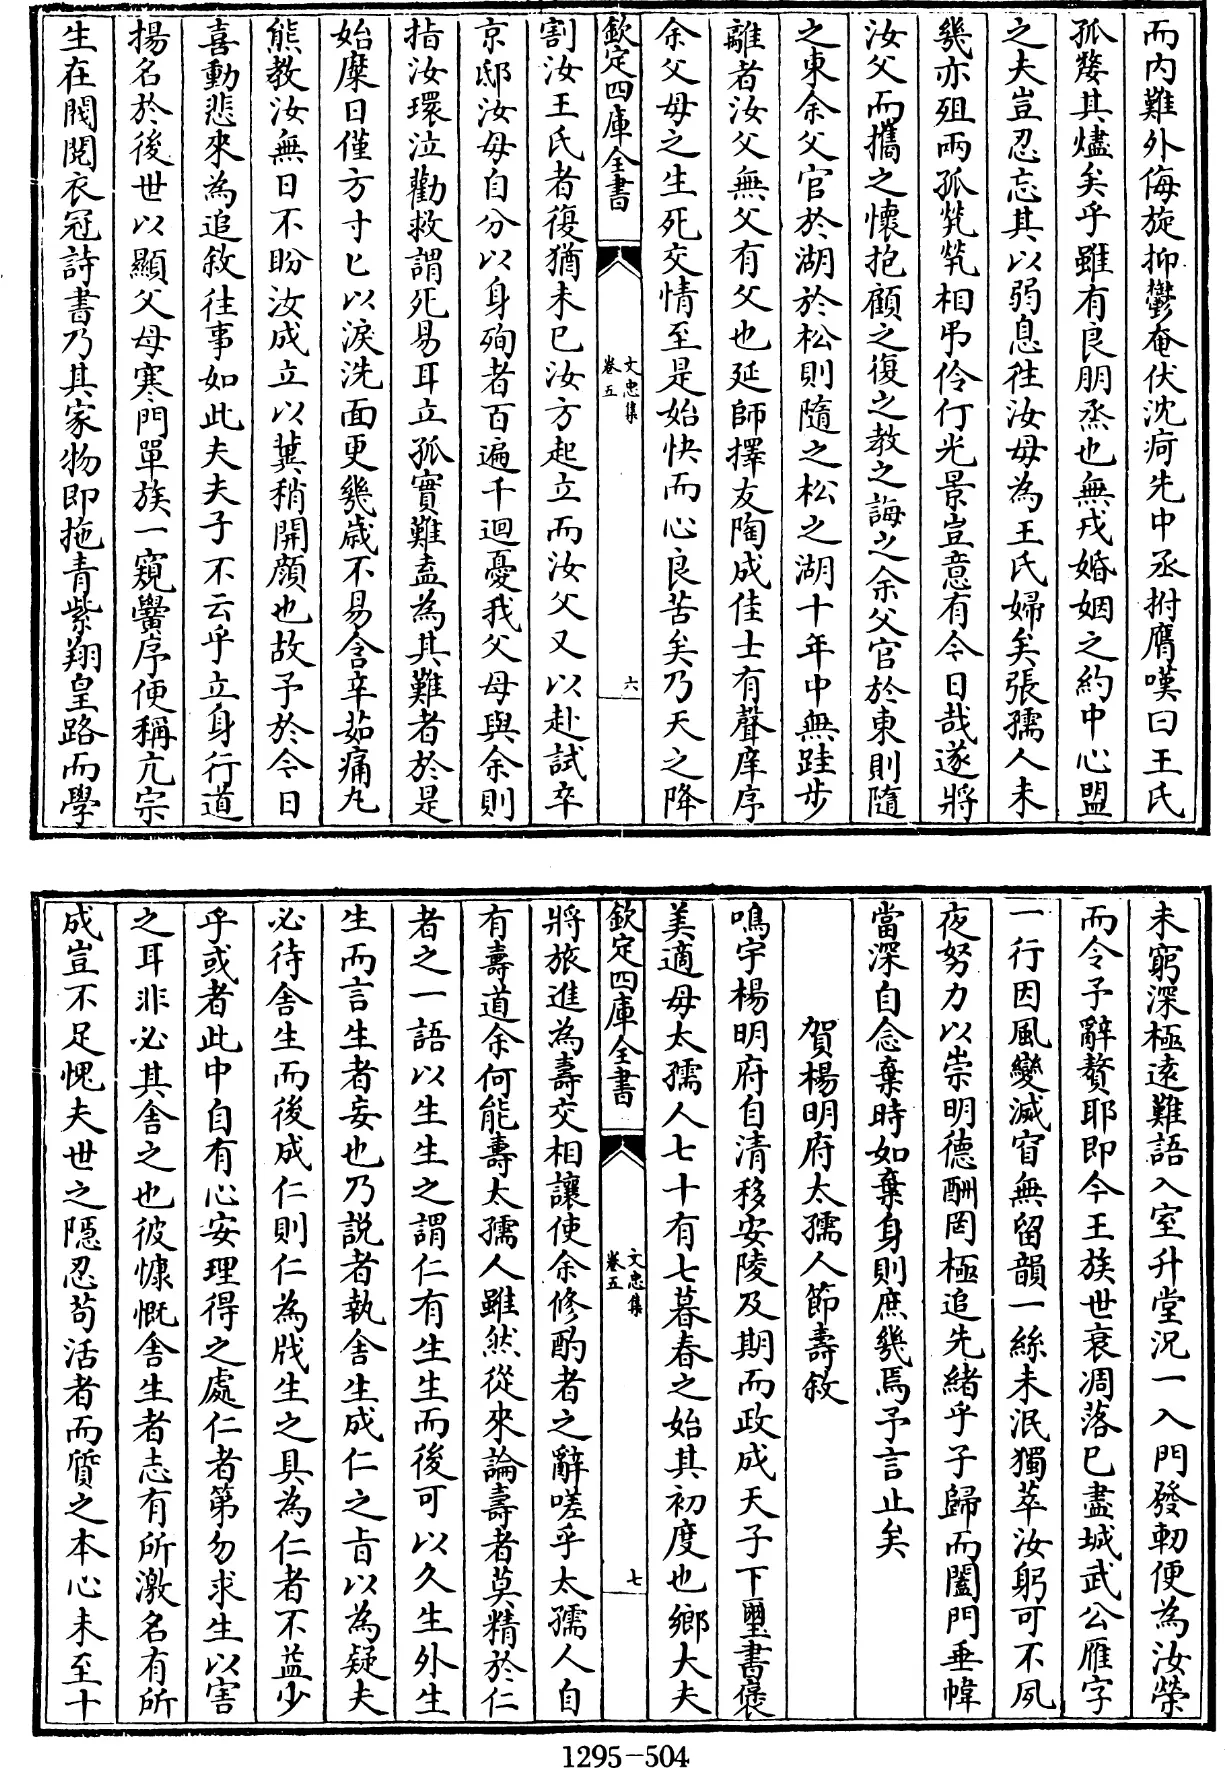 而内難外侮旋抑鬱奄伏沈疴先中丞拊膺嘆曰王氏
孤嫠其燼矣乎雖有良朋烝也無戎婚姻之約中心盟
之夫豈忍忘其以弱息往汝母為王氏婦矣張孺人未
幾亦殂兩孤煢煢相弔伶仃光景豈意有今日哉遂將
汝父而攜之懷抱顧之復之教之誨之余父官於東則隨
之東余父官於湖於松則隨之松之湖十年中無跬步
離者汝父無父有父也延師擇友陶成佳士有聲庠序
余父母之生死交情至是始快而心良苦矣乃天之降
欽定四庫全書
文忠集
卷五
六
割汝王氏者復猶未已汝方起立而汝父又以赴試卒
京邸汝母自分以身殉者百遍千迴憂我父母與余則
指汝環泣勸救謂死易耳立孤實難盍為其難者於是
始糜日僅方寸匕以淚洗面更幾歲不易含辛茹痛丸
熊教汝無日不盼汝成立以冀稍開顏也故予於今日
喜動悲來為追敘往事如此夫夫子不云乎立身行道
揚名於後世以顯父母寒門單族一窺黌序便稱亢宗
生在閥閱衣冠詩書乃其家物即拖青紫翔皇路而學
未窮深極遠難語入室升堂況一入門發軔便為汝榮
而令予辭贅耶即今王族世衰凋落已盡城武公雁字
一行因風變滅窅無留韻一絲未泯獨萃汝躬可不夙
夜努力以崇明德酬罔極追先緒乎子歸而闔門垂幃
當深自念棄時如棄身則庶幾焉予言止矣
賀楊明府太孺人節壽敘
鳴宇楊明府自清移安陵及期而政成天子下璽書褒
美適母太孺人七十有七暮春之始其初度也鄉大夫
欽定四庫全書
文忠集
卷五
七
將旅進為壽交相讓使余修酌者之辭嗟乎太孺人自
有壽道余何能壽太孺人雖然從來論壽者莫精於仁
者之一語以生生之謂仁有生生而後可以久生外生
生而言生者妄也乃說者執舍生成仁之旨以為疑夫
必待舍生而後成仁則仁為戕生之具為仁者不益少
乎或者此中自有心安理得之處仁者第勿求生以害
之耳非必其舍之也彼慷慨舍生者志有所激名有所
成豈不足愧夫世之隱忍苟活者而質之本心未至十
1295-504